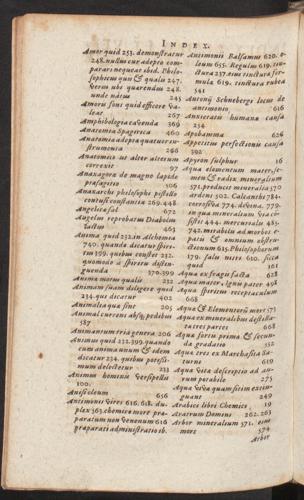 INDEX.
Amor quid 253. demonstratur
248. nullus cur adepto com-
parari nequeat ibid. Philo-
sophicus qui & qualis 247.
verus ubi quærendus 248.
unde natus 245
Amoris soni quid efficere va-
leat 267
Amphibologia cavenda 369
Anatomia Spagerica 460
Anatomia adepta quatuor in-
strumenta 246
Anatomico ut alter alterum
correxit 97
Anaxagoræ de magno lapide
præsagitio 306
Anaxarchi philosophi pistello
contusi constantia 269. 448
Angelica sal 672
Angelum reprobatum Diabolum
factus 463
Anima quid 232. in Alchemia
740. quando dicatur spiri-
tus 399. quibus constet 232.
quomodo à spiritu distin-
guenda 370.399
Anima mores qualis 232
Animam suam deligere quid
234. quæ dicatur 402
Animalia quæ sint 205
Animal currens absque pedibus
587
Animantium tria genera 206
Animus quid 232.399. quando
cum anima unum & idem
dicatur 234. quibus potissi-
mum delectetur 233
Animus hominis versipellis
100.
Anisi oleum 656
Antimonii vires 616. 618. du-
plex 363. chemice more præ-
paratum non venenum 616
præparati administratio ib.
Antimonii Balsamus 620. o-
leum 655. Regulus 619. tin-
ctura 237. eius tinctura for-
mula 619. tinctura rubea
541
Antonij Schneberge locus de
antimonio 616
Anxietatis humanæ causa
234
Apobamma 626
Appetitus perfectionis causa
392
Apyron sulphur 16
Aqua elementum mater se-
men & radix mineralium
571. producit mineralia 370
ardens 502. Calcanthi 784
corrosiva 774. æthena. 779
in qua mineralium vis co-
sistit 484. mercurialis 485.
742. mirabilis ad morbos e-
patis & omnium disten-
tionum 615. Philosophorum
179. salis miri 610. sicca
quid 161
Aqua ex fragis facta 628
Aqua mater, ignis pater 498
Aqua spiritus receptaculum
668
Aqua & Elementum mors 575
Aqua ex mineralibus destilla-
ta tres partes 668
Aqua fortis prima & secun-
da gradatio 552
Aqua tres ex Marchasita Sa-
turni 619
Aqua vitæ descriptio ad au-
rum potabile 275
Aqua viva quam sitim extin-
guant 249
Arabice libri Chemici 19
Aratrum Domini 262.263
Arbor mineralium 571. eius
mors 574
Arbor